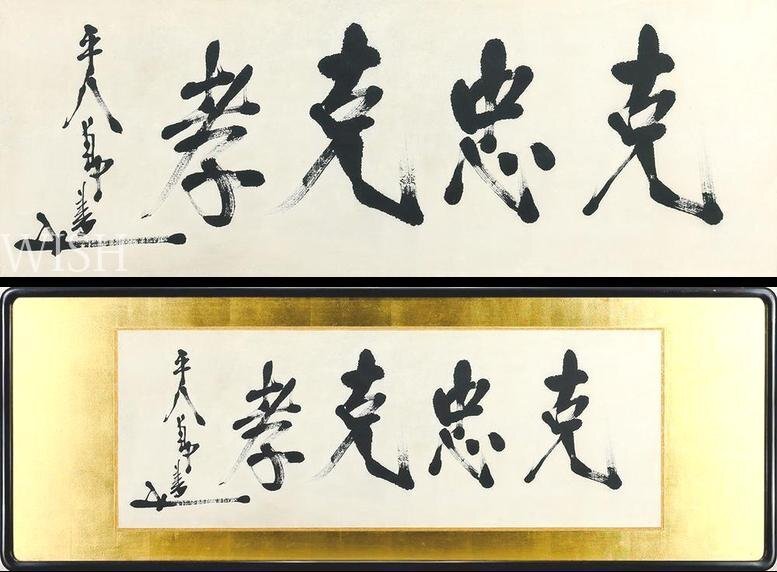 克忠克孝
平八郎書
WISH
克忠克孝
平八郎書